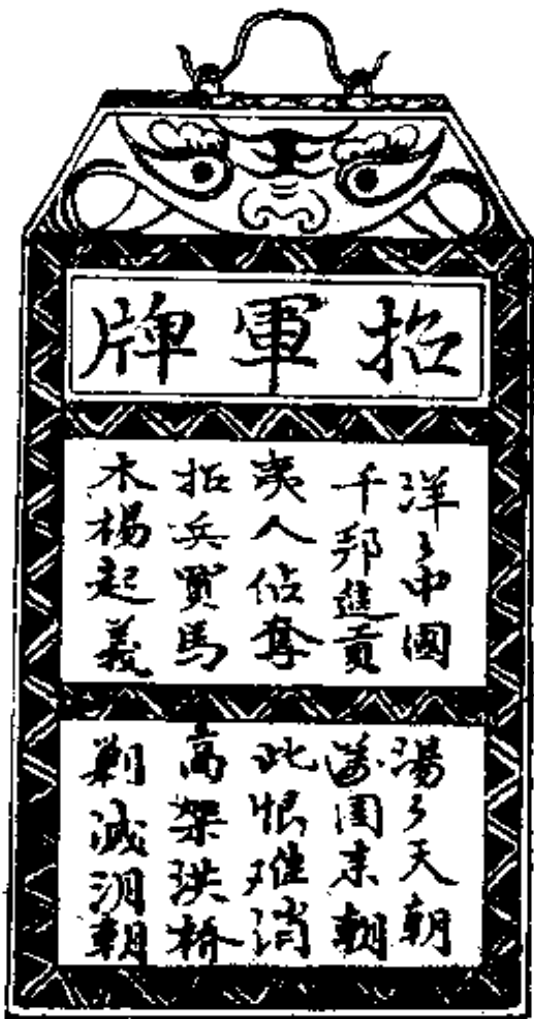 招軍牌
洋〻中國
千邦進貢
夷人佔奪
招兵買馬
木楊起義
湯〻天朝
萬國來朝
此恨难消
高架洪桥
剿滅朝